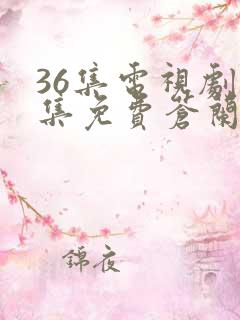 36集电視劇
集免費蒼蘭
錦夜